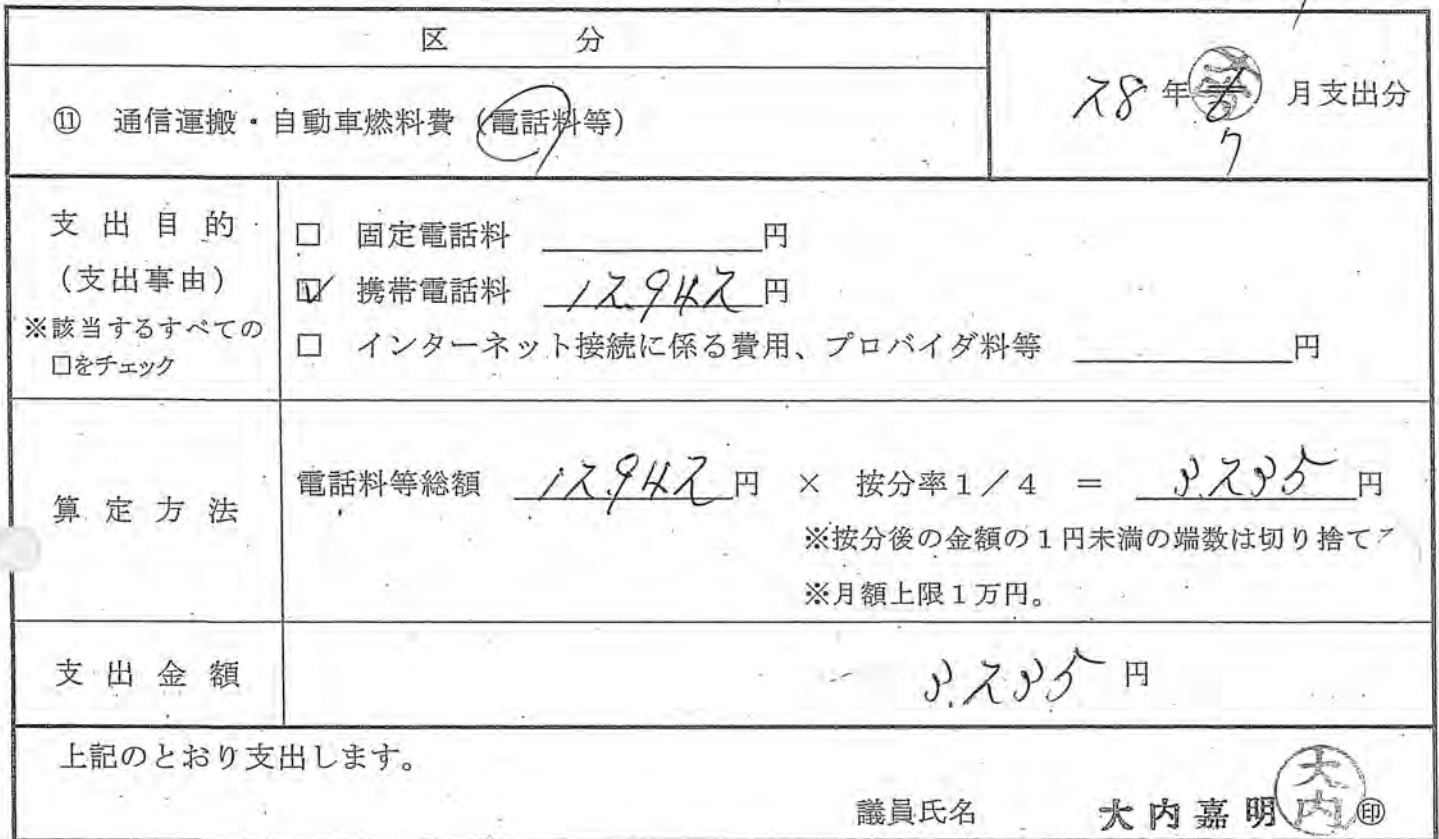 区 分
28年 7 月支出分
⑪ 通信運搬・自動車燃料費(電話料等)
支出目的
(支出事由)
※該当するすべての
□をチェック
□ 固定電話料 円
☑ 携帯電話料 12.942円
□ インターネット接続に係る費用、プロバイダ料等 円
算定方法
電話料等総額 12.942円 × 按分率1/4 = 3.235円
※按分後の金額の1円未満の端数は切り捨て
※月額上限1万円。
支出金額
3.235円
上記のとおり支出します。
議員氏名 大内嘉明 ㊞
大内